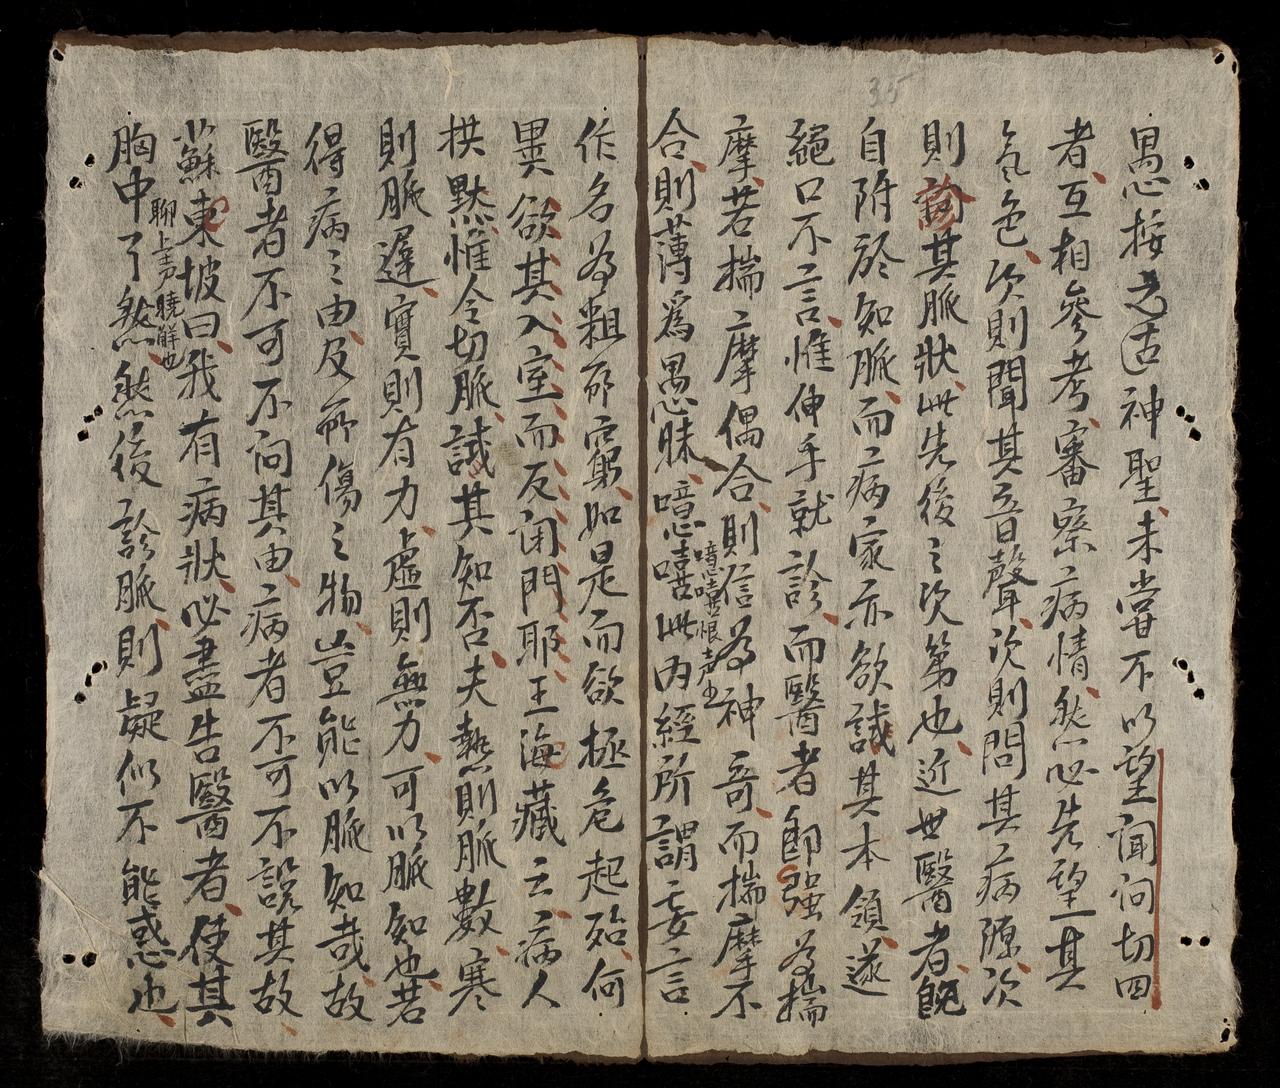 35
愚心按之古神聖未嘗不以望闻问切四
者互相參考審察病情然必先望其
氣色次則聞其音聲次則問其病源次
則診其脈狀此先後之次第也近世醫者既
自附於知脈而病家亦欲試其本領遂
絕口不言惟伸手就診而醫者即强為揣
摩若揣摩偶合則信為神奇而揣摩不
合則薄爲愚昧噫嘻此内經所謂妄言
噫嘻恨声也
作名為粗所窮如是而欲極危起殆何
異欲其入室而反闭門耶王海藏云病人
拱默惟令切脈試其知否夫熱則脈數寒
則脈遲實則有力虛則無力可以脈知也若
得病之由及所傷之物豈能以脈知哉故
醫者不可不问其由病者不可不說其故
蘇東坡曰我有病狀必盡告醫者使其
聊上声曉解也
胸中了然然後診脈則疑似不能惑也